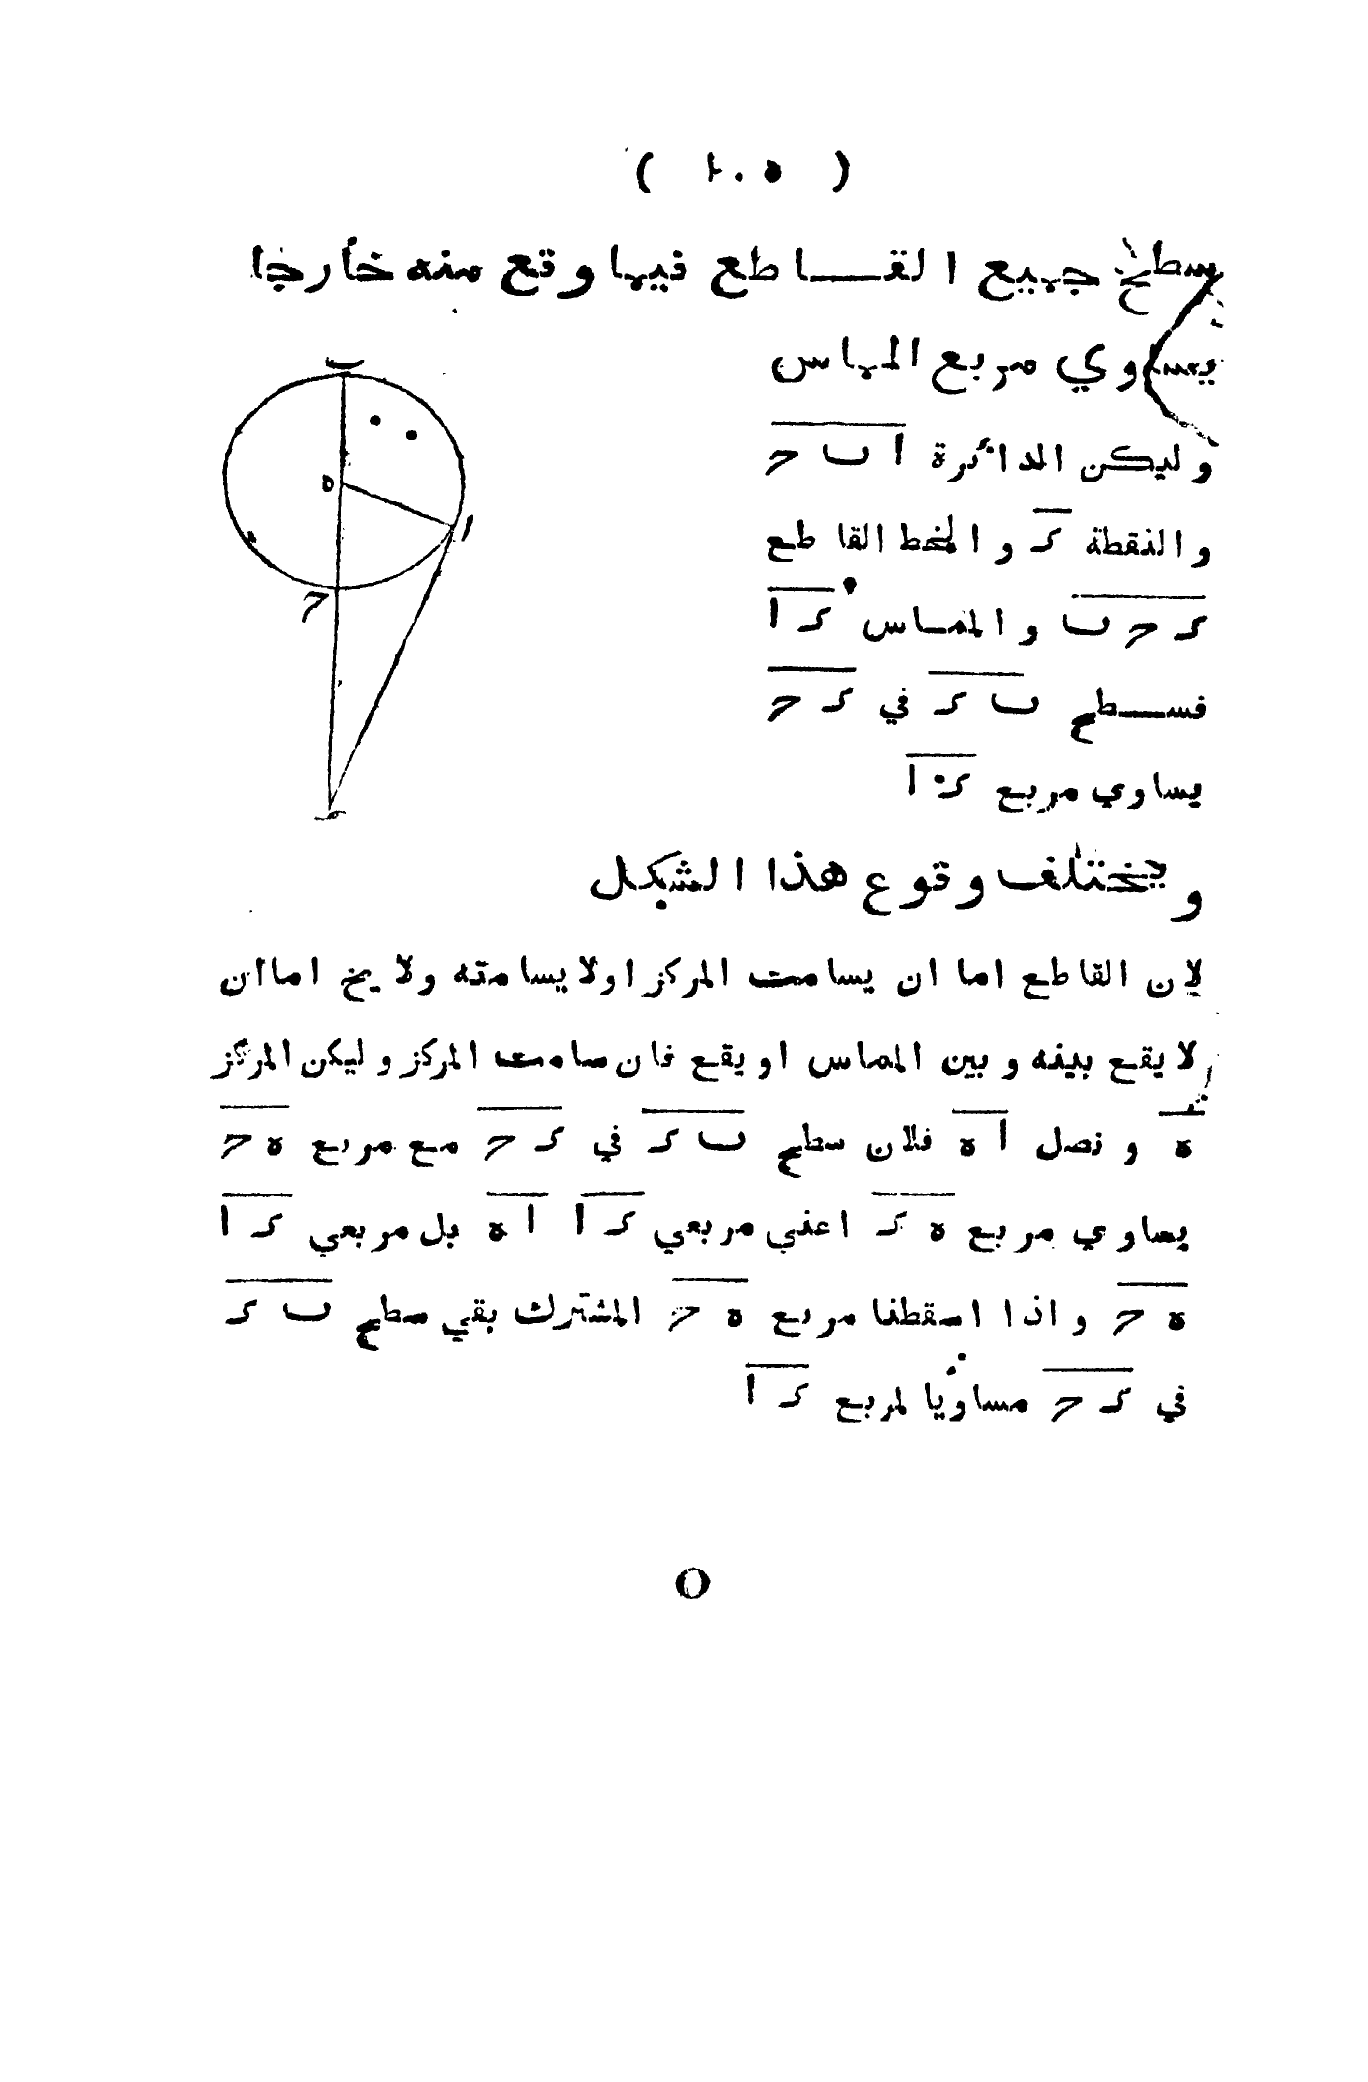 ( ١٠٥ )
بسطح جميع القاطع فيما وقع منه خارجا
يساوي مربع المماس
وليكن الدائرة ا ب ح
والنقطة د والخط القاطع
د ح ب والمماس د ا
فسطح ب د في د ح
يساوي مربع د ا
ويختلف وقوع هذا الشكل
لان القاطع اما ان يسامت المركز او لا يسامته ولا يخ اما ان
لا يقع بينه وبين المماس او يقع فان سامت المركز وليكن المركز
ه ونصل ا ه فلان سطح ب د في د ح مع مربع ه ح
يساوي مربع ه د اعني مربعي د ا ا ه بل مربعي د ا
ه ح واذا اسقطنا مربع ه ح المشترك بقي سطح ب د
في د ح مساويا لمربع د ا
ب
ه
ا
ح
د
O